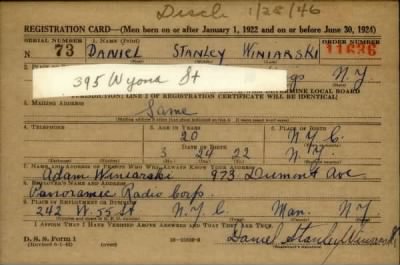 Disch 1/28/46
REGISTRATION CARD—(Men born on or after January 1, 1922 and on or before June 30, 1924)
SERIAL NUMBER 1. NAME (Print) ORDER NUMBER
N 73 DANIEL STANLEY WINIARSKI 11636
395 Wyona St N Y
OF REGISTRATION CERTIFICATE WILL BE IDENTICAL]
3. MAILING ADDRESS
Same
4. TELEPHONE 5. AGE IN YEARS 6. PLACE OF BIRTH
20 N.Y.C.
DATE OF BIRTH
3 24 22 N.Y.
7. NAME AND ADDRESS OF PERSON WHO WILL ALWAYS KNOW YOUR ADDRESS
Adam Winiarski 973 Dumont Ave
8. EMPLOYER'S NAME AND ADDRESS
Panoramic Radio Corp.
9. PLACE OF EMPLOYMENT OR BUSINESS
242 W. 55 St N.Y.C. Man. NY
I AFFIRM THAT I HAVE VERIFIED ABOVE ANSWERS AND THAT THEY ARE TRUE.
D. S. S. Form 1 Daniel Stanley Winiarski